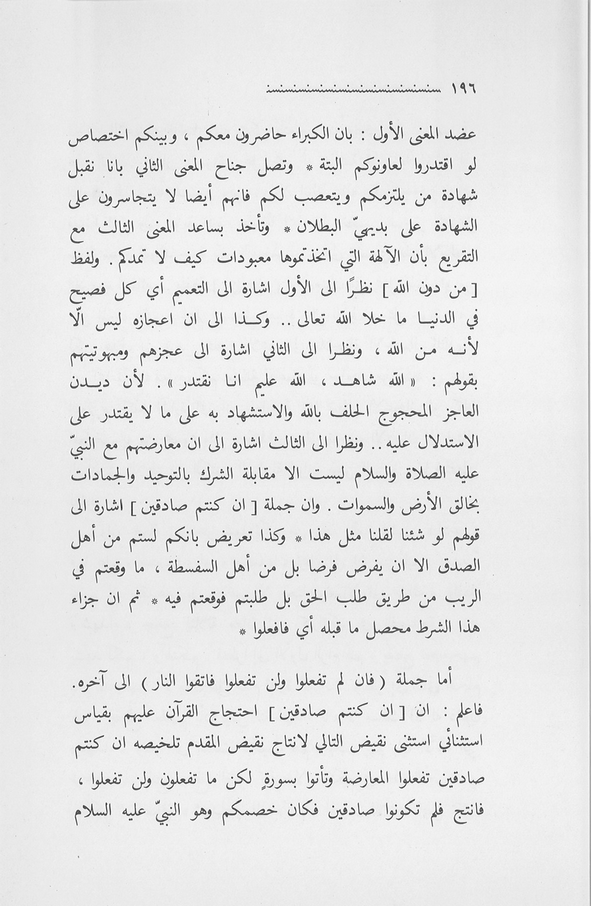 ١٩٦
عضد المعنى الأول : بان الكبراء حاضرون معكم ، وبينكم اختصاص
لو اقتدروا لعاونوكم البتة * وتصل جناح المعنى الثاني بانا نقبل
شهادة من يلتزمكم ويتعصب لكم فانهم أيضا لا يتجاسرون على
الشهادة على بديهيّ البطلان * وتأخذ بساعد المعنى الثالث مع
التقريع بأن الآلهة التي اتخذتموها معبودات كيف لا تمدكم . ولفظ
[ من دون الله ] نظرًا الى الأول اشارة الى التعميم أي كل فصيح
في الدنيا ما خلا الله تعالى .. وكذا الى ان اعجازه ليس الّا
لأنه من الله ، ونظرا الى الثاني اشارة الى عجزهم ومبهوتيتهم
بقولهم : « الله شاهد ، الله عليم انا نقتدر » . لأن ديدن
العاجز المحجوج الحلف بالله والاستشهاد به على ما لا يقتدر على
الاستدلال عليه .. ونظرا الى الثالث اشارة الى ان معارضتهم مع النبيّ
عليه الصلاة والسلام ليست الا مقابلة الشرك بالتوحيد والجمادات
بخالق الأرض والسموات . وان جملة [ ان كنتم صادقين ] اشارة الى
قولهم لو شئنا لقلنا مثل هذا * وكذا تعريض بانكم لستم من أهل
الصدق الا ان يفرض فرضا بل من أهل السفسطة ، ما وقعتم في
الريب من طريق طلب الحق بل طلبتم فوقعتم فيه * ثم ان جزاء
هذا الشرط محصل ما قبله أي فافعلوا *
أما جملة ( فان لم تفعلوا ولن تفعلوا فاتقوا النار ) الى آخره.
فاعلم : ان [ ان كنتم صادقين ] احتجاج القرآن عليهم بقياس
استثنائي استثنى نقيض التالي لانتاج نقيض المقدم تلخيصه ان كنتم
صادقين تفعلوا المعارضة وتأتوا بسورةٍ لكن ما تفعلون ولن تفعلوا ،
فانتج فلم تكونوا صادقين فكان خصمكم وهو النبيّ عليه السلام